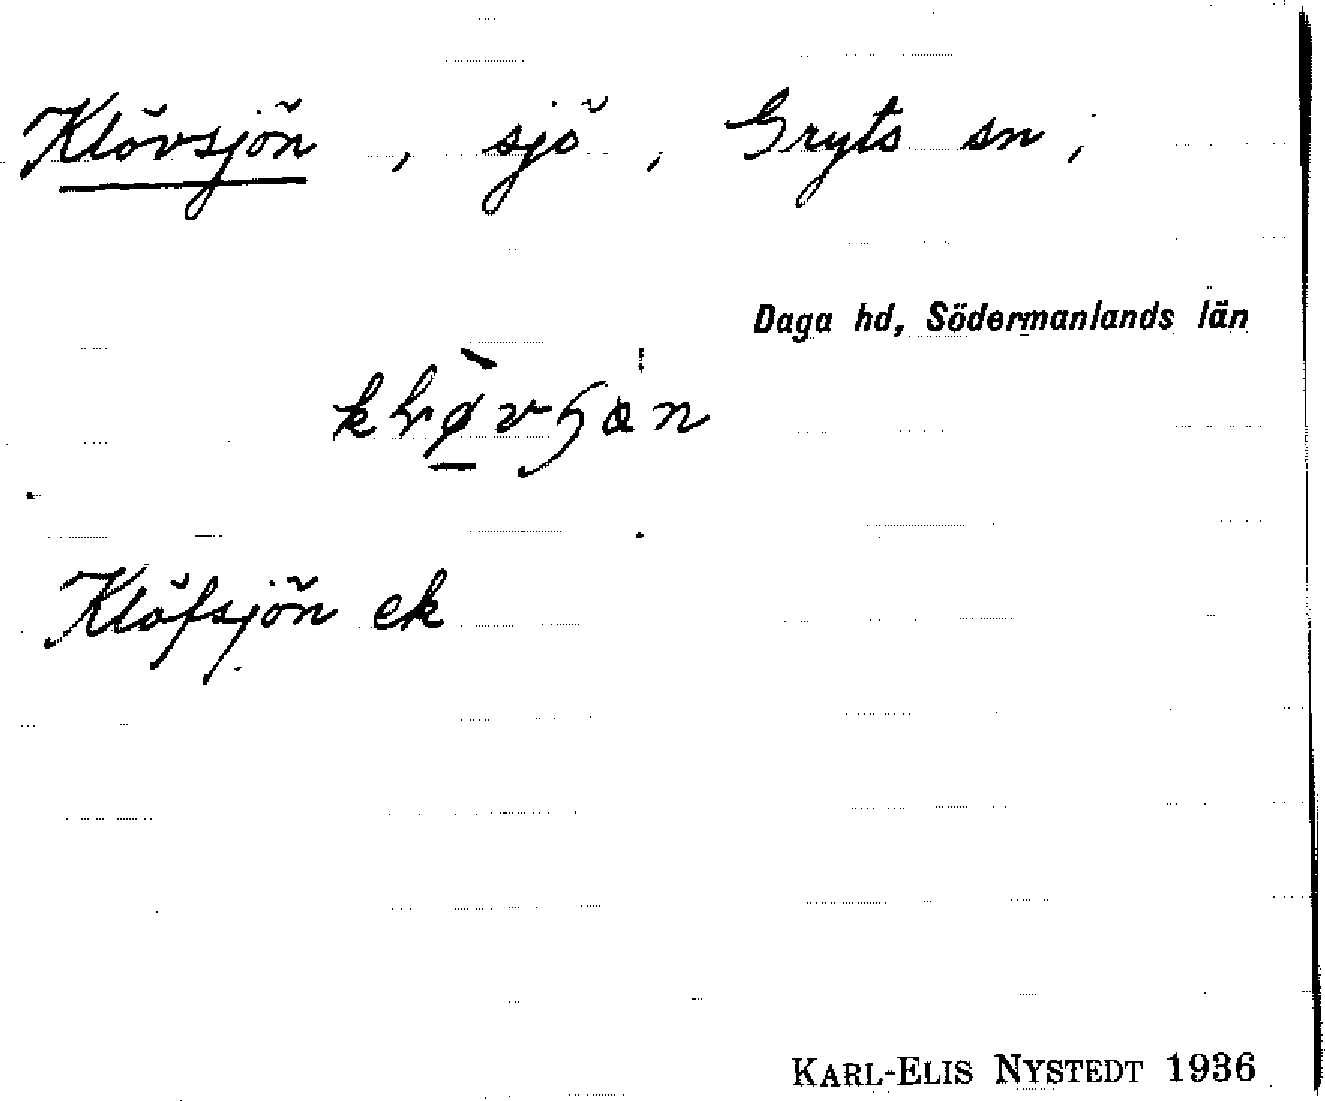 Klövsjön, sjö, Gryts sn;
Daga hd, Södermanlands län
Klöfsjön ek
KARL-ELIS NYSTEDT 1936